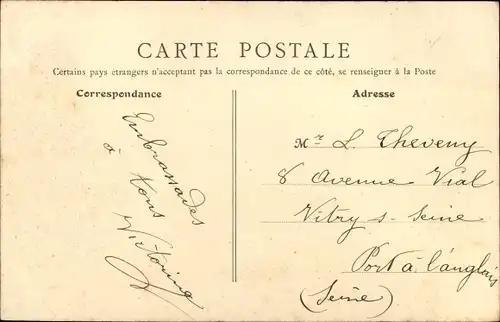 CARTE POSTALE
Certains pays étrangers n'acceptant pas la correspondance de ce côté, se renseigner à la Poste
Correspondance
Embrassades
à tous
Victorine
Adresse
Mr L. Theveny
8 Avenue Vial
Vitry s- Seine
Port à l'anglais
(Seine)